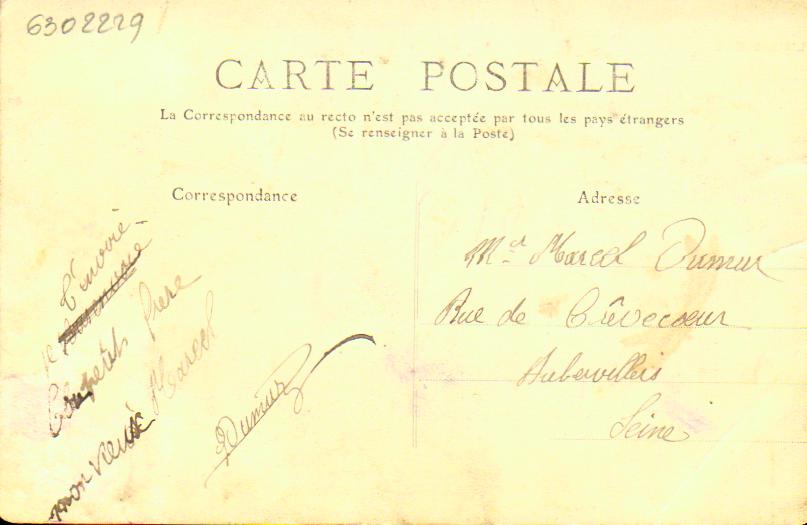 6302229
CARTE POSTALE
La Correspondance au recto n'est pas acceptée par tous les pays étrangers
(Se renseigner à la Poste)
Correspondance
Adresse
Mr Marcel Dumur
Rue de Crêvecoeur
Aubervilliers
Seine
frere
mon vieux Marcel
Dumur